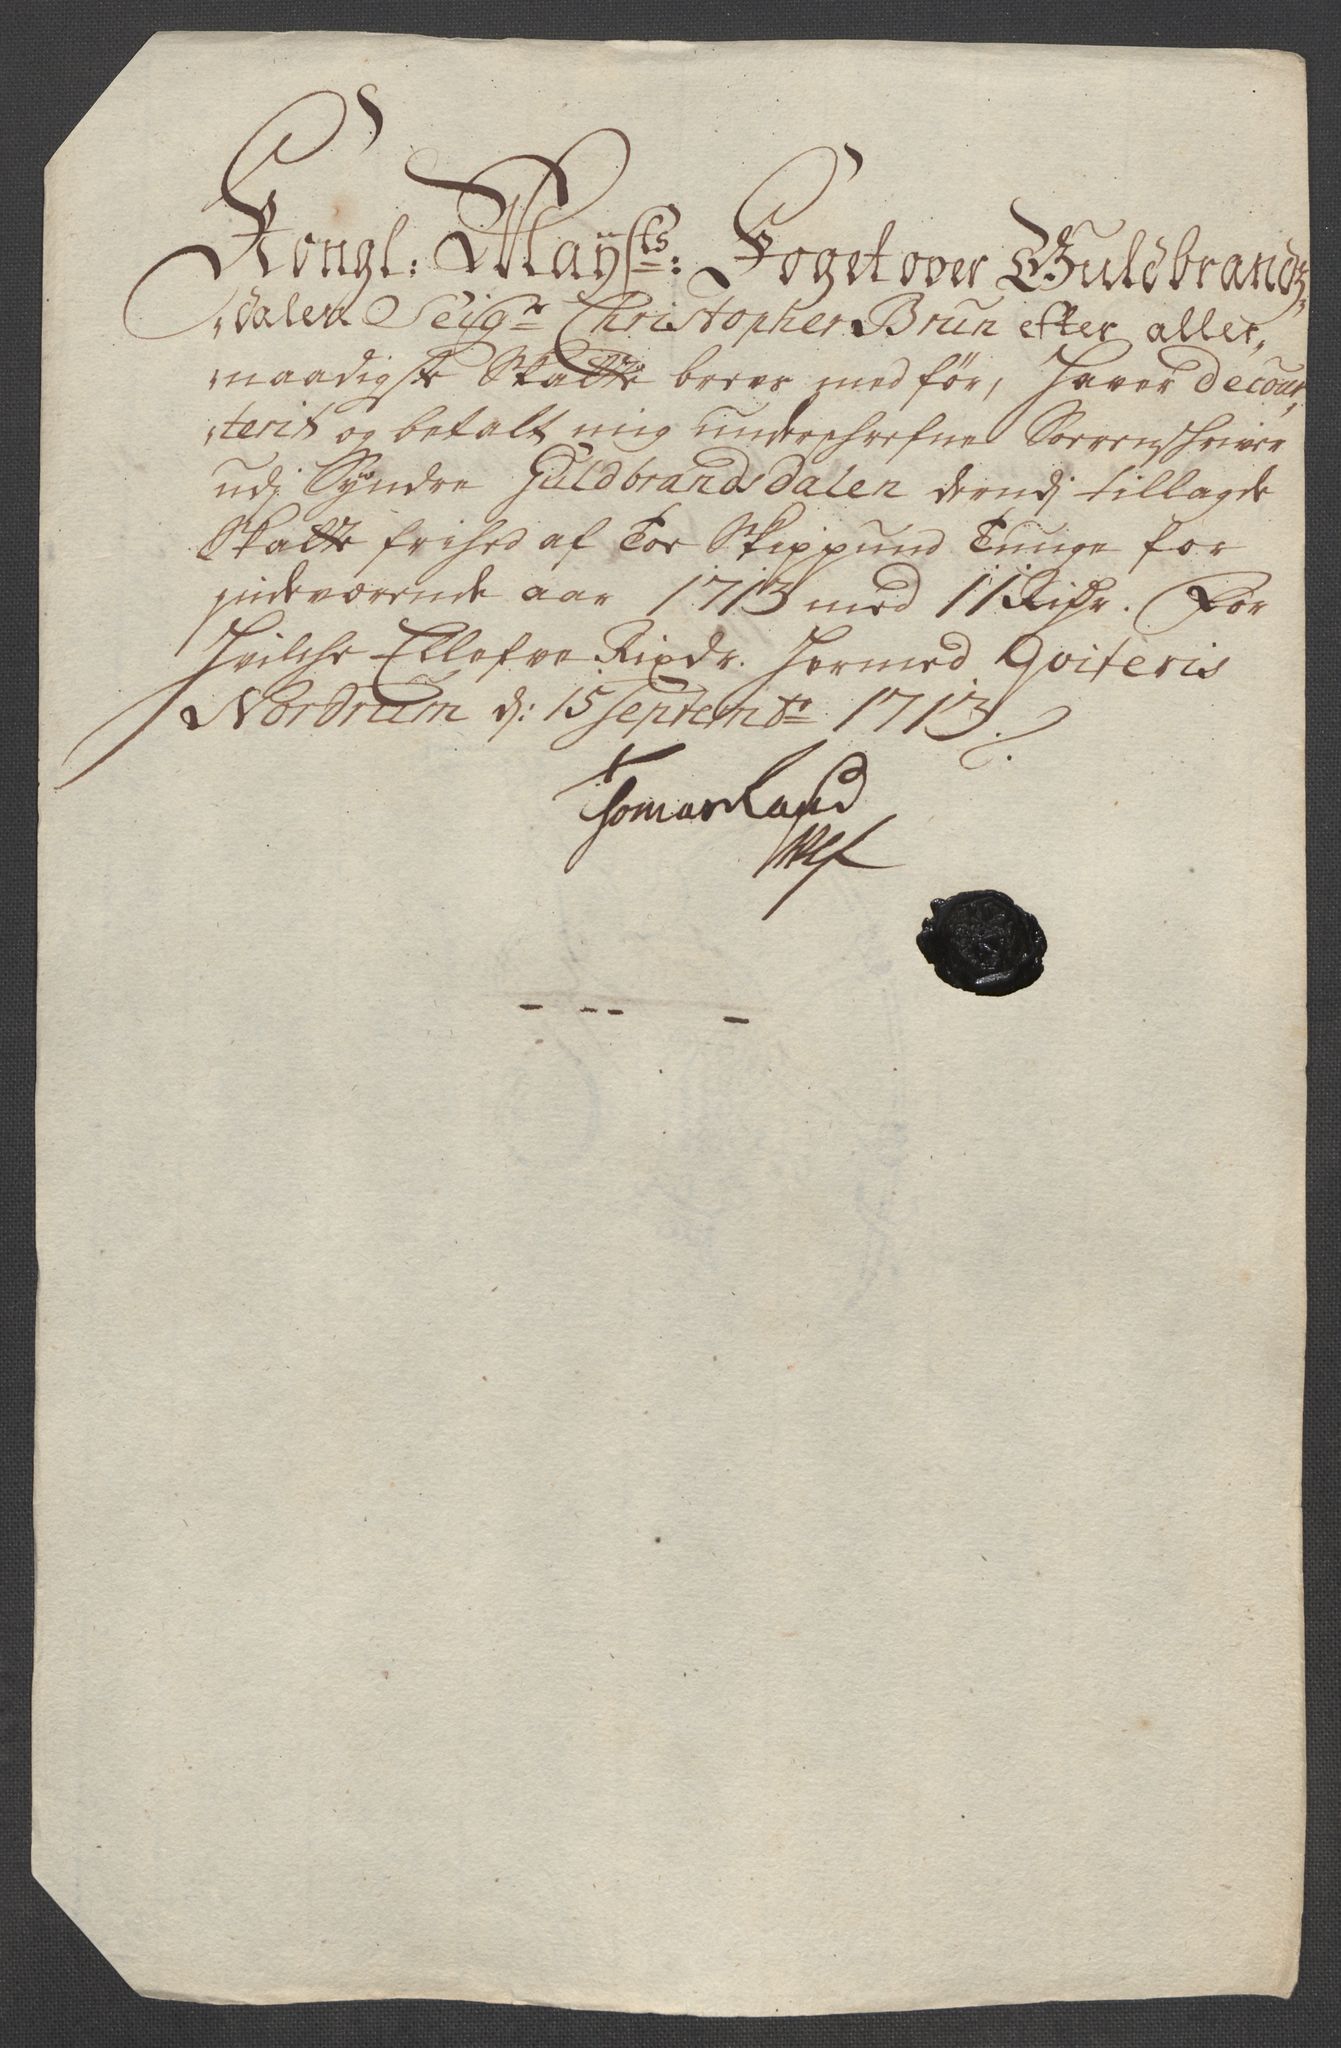 Kongl: Maÿsts: Foget over Guldbrands,
,dalen Seigr Christopher Brun efter aller,
naadigste Skatte brevs medfør, Haver decour,
,terit og betalt mig underschrefne Sorrenschriver
udj Syndre Guldbrandsdalen derudj tillagde
Skatte frihed af Toe Skippund Tunge for
indeværende aar 1713 med 11 Rixdr. For
Hvilche Ellefve Rixdr. Hermed Qviteris
Nordrum d: 15 Septembr 1713.
Thomas Raud